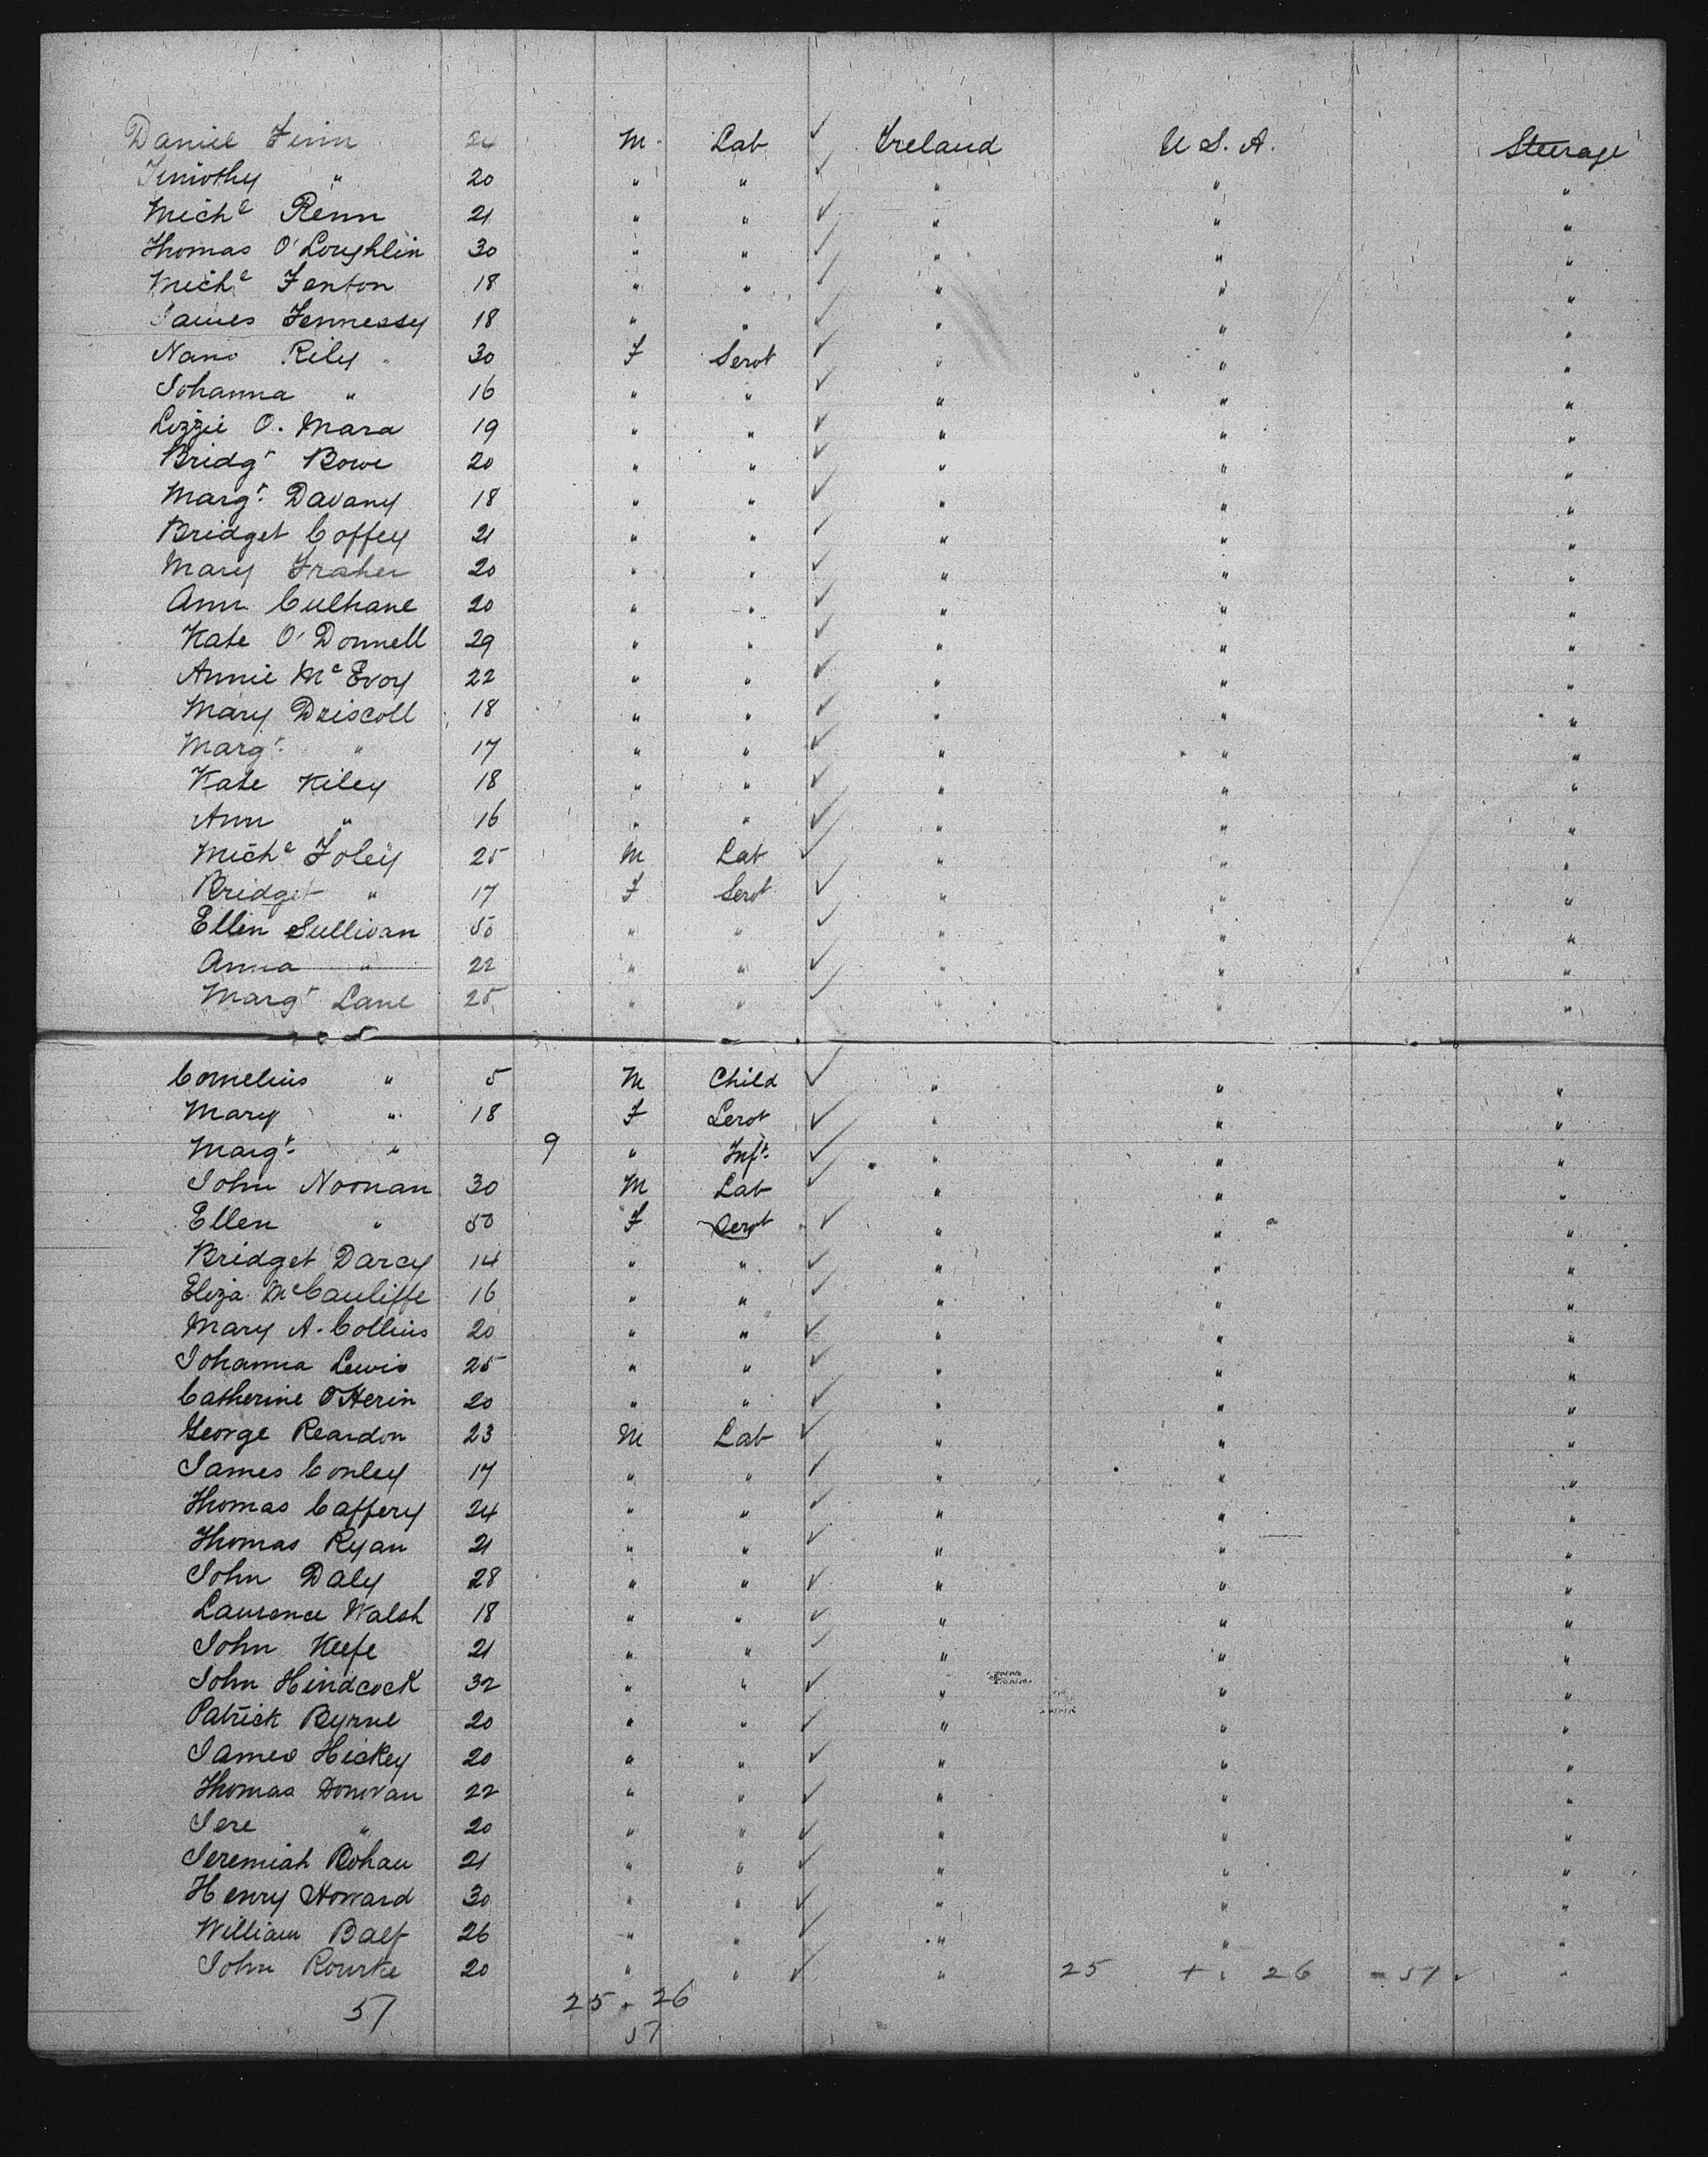 Daniel Finn 24 M. Lab ✓ Ireland U.S.A. Steerage
Timothy " 20 " " ✓ " " "
Michl Renn 21 " " ✓ " " "
Thomas O'Loughlin 30 " " ✓ " " "
Michl Fenton 18 " " ✓ " " "
James Fennessy 18 " " ✓ " " "
Nano Riley 30 F Servt ✓ " " "
Johanna " 16 " " ✓ " " "
Lizzie O. Mara 19 " " ✓ " " "
Bridgt Bowe 20 " " ✓ " " "
Margt Davany 18 " " ✓ " " "
Bridget Coffey 21 " " ✓ " " "
Mary Fraher 20 " " ✓ " " "
Ann Culhane 20 " " ✓ " " "
Kate O'Donnell 29 " " ✓ " " "
Annie McEvoy 22 " " ✓ " " "
Mary Driscoll 18 " " ✓ " " "
Margt " 17 " " ✓ " " "
Kate Kiley 18 " " ✓ " " "
Ann " 16 " " ✓ " " "
Michl Foley 25 M Lab ✓ " " "
Bridget " 17 F Servt ✓ " " "
Ellen Sullivan 50 " " ✓ " " "
Anna " 22 " " ✓ " " "
Margt Lane 25 " " ✓ " " "
Cornelius " 5 M Child ✓ " " "
Mary " 18 F Servt ✓ " " "
Margt " 9 " Inft. ✓ " " "
John Noonan 30 M Lab ✓ " " "
Ellen " 50 F Servt ✓ " " "
Bridget Darcy 14 " " ✓ " " "
Eliza McCauliffe 16 " " ✓ " " "
Mary A. Collins 20 " " ✓ " " "
Johanna Lewis 25 " " ✓ " " "
Catherine O'Herin 20 " " ✓ " " "
George Reardon 23 M Lab ✓ " " "
James Conley 17 " " ✓ " " "
Thomas Caffery 24 " " ✓ " " "
Thomas Ryan 21 " " ✓ " " "
John Daly 28 " " ✓ " " "
Laurence Walsh 18 " " ✓ " " "
John Keefe 21 " " ✓ " " "
John Hindcock 32 " " ✓ " " "
Patrick Byrne 20 " " ✓ " " "
James Hickey 20 " " ✓ " " "
Thomas Donovan 22 " " ✓ " " "
Jere " 20 " " ✓ " " "
Jeremiah Rohan 21 " " ✓ " " "
Henry Howard 30 " " ✓ " " "
William Balf 26 " " ✓ " " "
John Rourke 20 " " ✓ " 25 + " 26 = 51 ✓ "
51 25 + 26
51